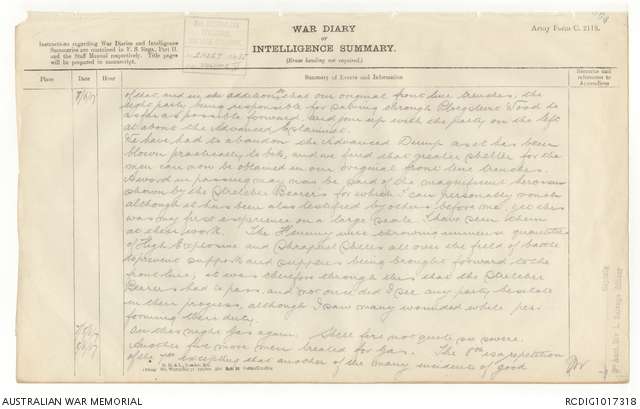 WAR DIARY
or
INTELLIGENCE SUMMARY.
(Erase heading not required.)
Army Form C. 2118.
Instructions regarding War Diaries and Intelligence
Summaries are contained in F. S. Regs., Part II.
and the Staff Manual respectively. Title pages
will be prepared in manuscript.
Place
Date
Hour
Summary of Events and Information
Remarks and
references to
Appendices
of that and in the addition that our original front line trenches, the
right party being responsible for salving through Ploegsteert Wood to
as far as possible forward, and join up with the party on the left
at about the Advanced Estaminet.
We have had to abandon the Advanced Dump as it has been
blown practically to bits, and we find that greater shelter for the
men can now be obtained in our original front line trenches.
A word in passing may now be said of the magnificent heroism
shown by the Stretcher Bearers for which I can personally vouch
although it has been also testified by others before me, yet this
was my first experience on a large scale I have seen them
at their work. The Enemy were throwing immense quantities
of High Explosive and Shrapnel Shells all over the field of battle
to prevent supports and supplies being brought forward to the
front line, it was therefore through this that the Stretcher
Bearers had to pass, and not once did I see any party hesitate
in their progress, although I saw many wounded while per-
forming their duty.
Another night Gas again. Shell fire not quite so severe.
Another five more men treated for Gas. The 8th is a repetition
of the 7th excepting that another of the many incidents of good
AUSTRALIAN WAR MEMORIAL
RCDIG1017318